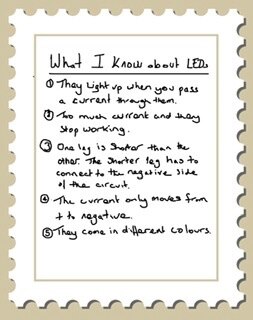 What I Know about LEDs
① They light up when you pass
a current through them.
② Too much current and they
stop working.
③ One leg is shorter than the
other. The shorter leg has to
connect to the negative side
of the circuit.
④ The current only moves from
+ to negative.
⑤ They come in different colours.